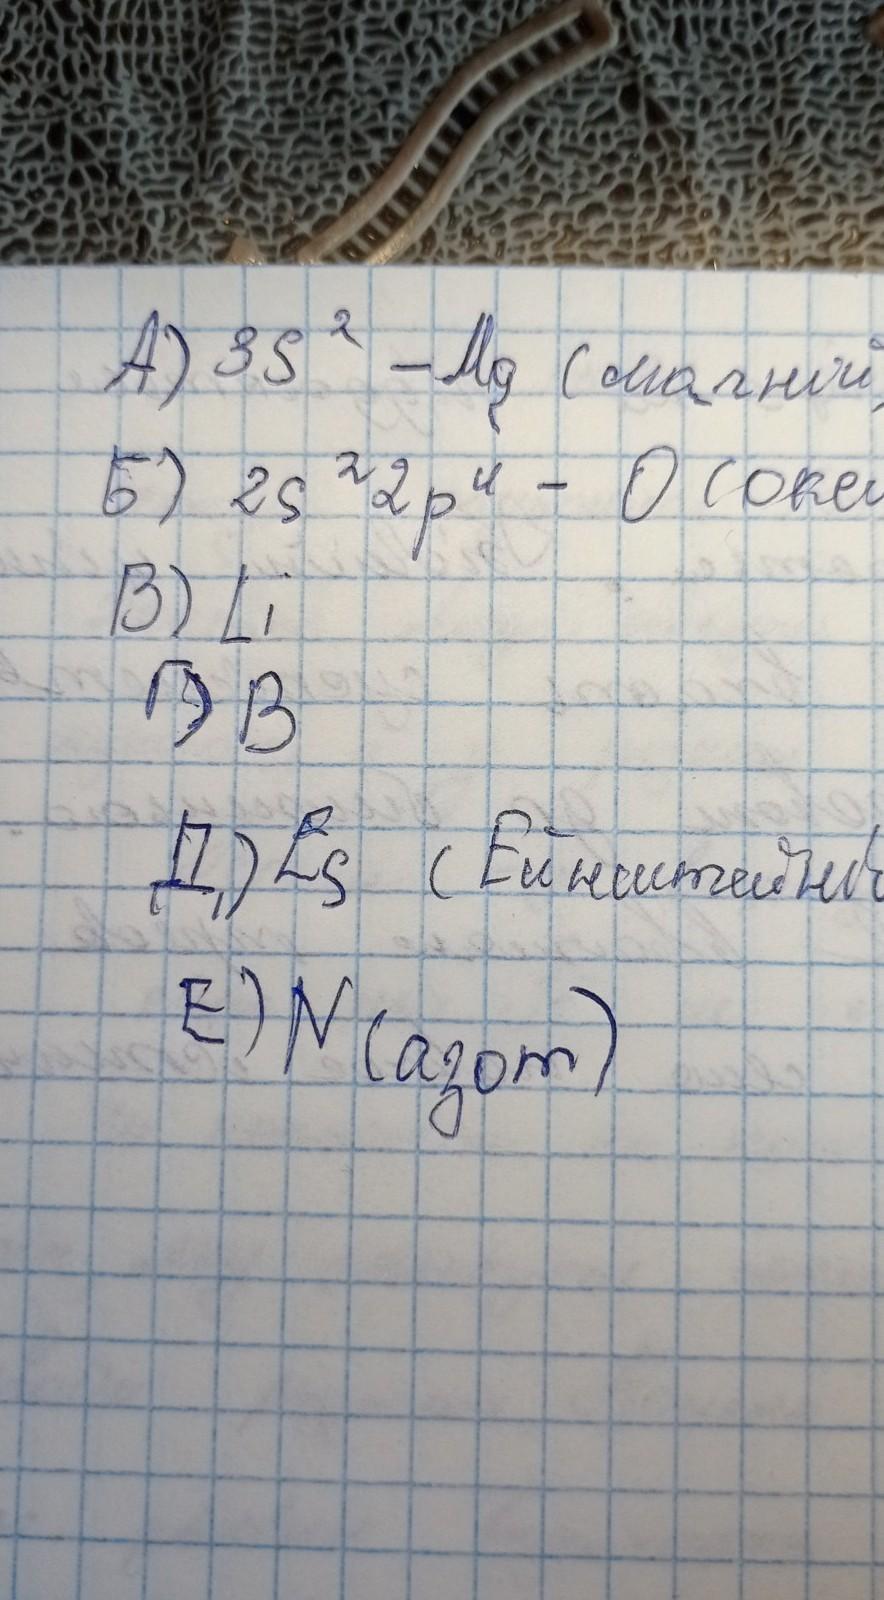 А) 3S² – Mg (магній
Б) 2s²2p⁴ – O (окси
В) Li
Г) B
Д) Es (Ейнштейній
Е) N (азот)